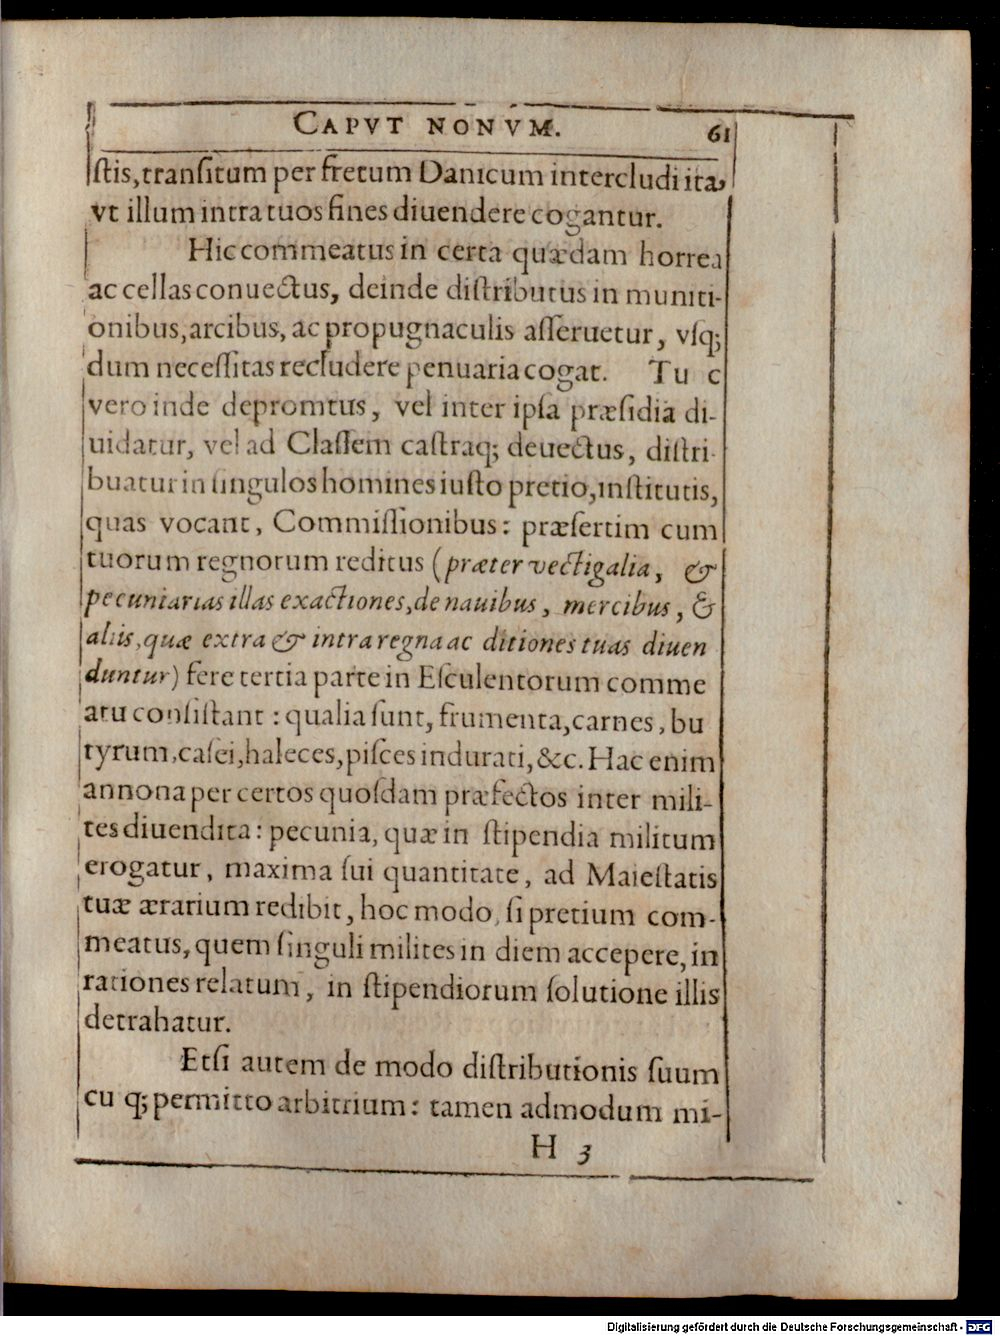 CAPVT NONVM. 61
ſtis, tranſitum per fretum Danicum intercludi ita,
vt illum intra tuos fines diuendere cogantur.
Hic commeatus in certa quædam horrea
ac cellas conuectus, deinde diſtributus in muniti-
onibus, arcibus, ac propugnaculis aſſeruetur, vſq;
dum neceſſitas recludere penuaria cogat. Tu c
vero inde depromtus, vel inter ipſa præſidia di-
uidatur, vel ad Claſſem caſtraq; deuectus, diſtri-
buatur in ſingulos homines iuſto pretio, inſtitutis,
quas vocant, Commiſſionibus: præſertim cum
tuorum regnorum reditus (præter vectigalia, &
pecuniarias illas exactiones, de nauibus, mercibus, &
aliis, quæ extra & intra regna ac ditiones tuas diuen
duntur) fere tertia parte in Eſculentorum comme
atu conſiſtant: qualia ſunt, frumenta, carnes, bu
tyrum, caſei, haleces, piſces indurati, &c. Hac enim
annona per certos quoſdam præfectos inter mili-
tes diuendita: pecunia, quæ in ſtipendia militum
erogatur, maxima ſui quantitate, ad Maieſtatis
tuæ ærarium redibit, hoc modo, ſi pretium com-
meatus, quem ſinguli milites in diem accepere, in
rationes relatum, in ſtipendiorum ſolutione illis
detrahatur.
Etſi autem de modo diſtributionis ſuum
cu q; permitto arbitrium: tamen admodum mi-
H 3
Digitalisierung gefördert durch die Deutsche Forschungsgemeinschaft - DFG